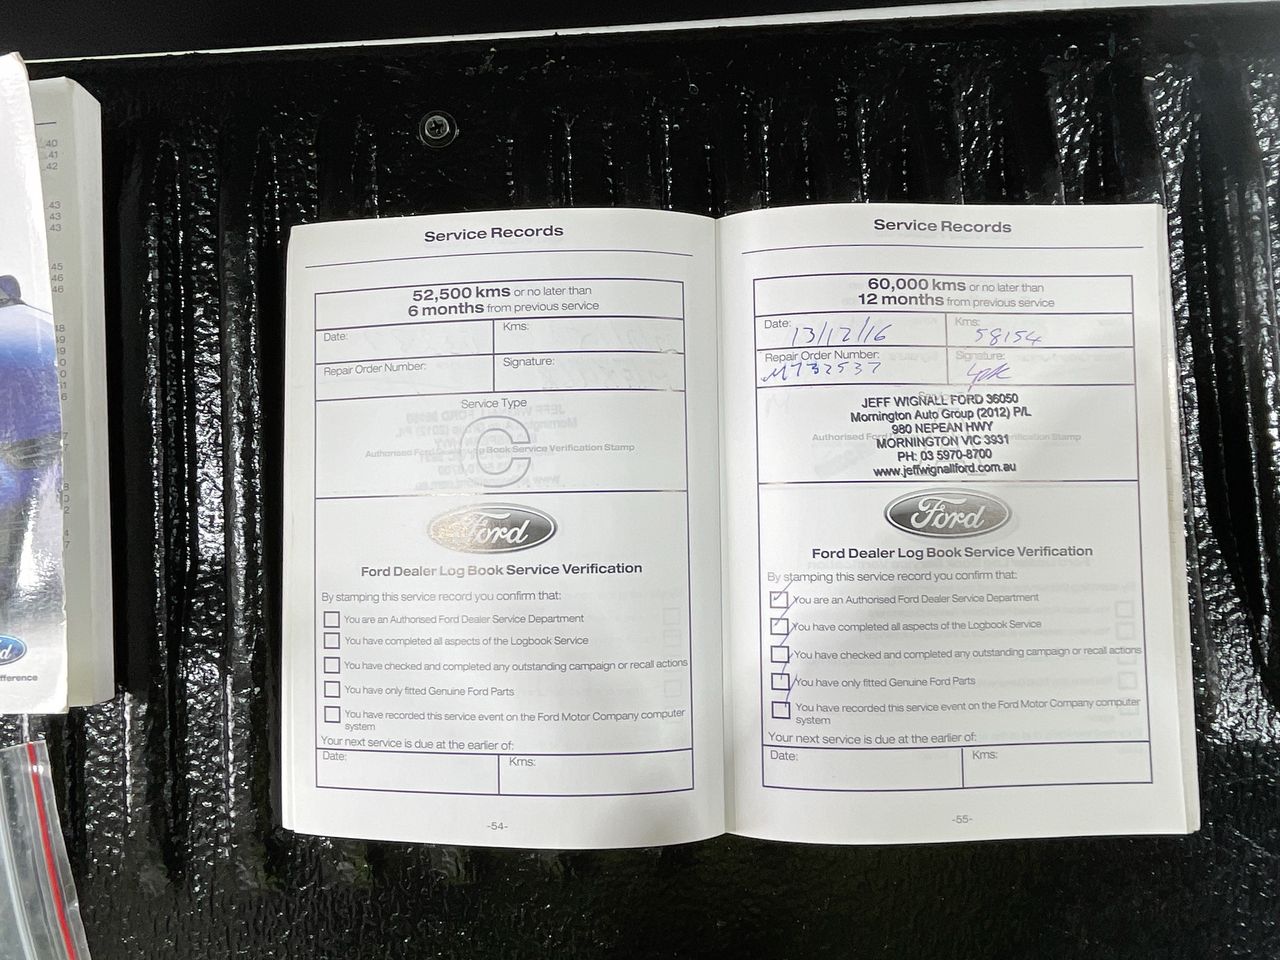 40
41
42
43
43
43
45
46
46
fference
Service Records
52,500 kms or no later than
6 months from previous service
Date:
Kms:
Repair Order Number:
Signature:
Service Type
C
Authorised Ford Dealer Log Book Service Verification Stamp
Ford
Ford Dealer Log Book Service Verification
By stamping this service record you confirm that:
You are an Authorised Ford Dealer Service Department
You have completed all aspects of the Logbook Service
You have checked and completed any outstanding campaign or recall actions
You have only fitted Genuine Ford Parts
You have recorded this service event on the Ford Motor Company computer
system
Your next service is due at the earlier of:
Date:
Kms:
-54-
Service Records
60,000 kms or no later than
12 months from previous service
Date: 13/12/16
Kms: 58154
Repair Order Number:
M732537
Signature:
JEFF WIGNALL FORD 36050
Mornington Auto Group (2012) P/L
980 NEPEAN HWY
MORNINGTON VIC 3931
PH: 03 5970-8700
www.jeffwignallford.com.au
Ford
Ford Dealer Log Book Service Verification
By stamping this service record you confirm that:
You are an Authorised Ford Dealer Service Department
You have completed all aspects of the Logbook Service
You have checked and completed any outstanding campaign or recall actions
You have only fitted Genuine Ford Parts
You have recorded this service event on the Ford Motor Company computer
system
Your next service is due at the earlier of:
Date:
Kms:
-55-